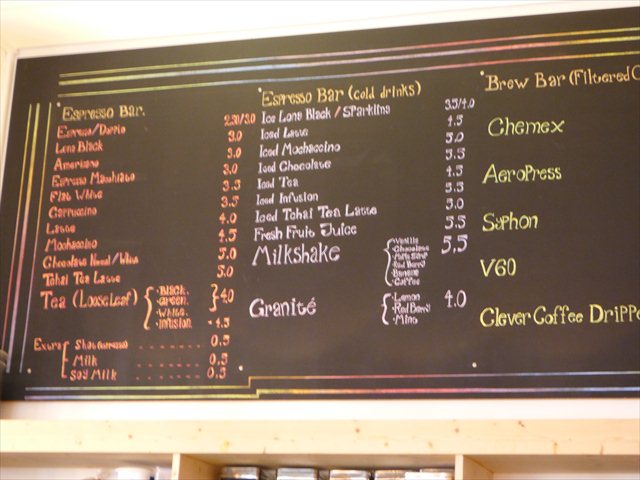 Espresso Bar.
Espresso/Doppio 2.50/3.0
Long Black 3.0
Americano 3.0
Espresso Macchiato 3.0
Flat White 3.5
Cappuccino 3.5
Latte 4.0
Mochaccino 4.5
Chocolate Noad/White 5.0
Tohai Tea Latte 5.0
Tea (Loose Leaf) 4.0
Black.
Green.
White.
Infusion. - 4.5
Extra
Shot (Espresso) 0.5
Milk 0.5
Soy Milk 0.5
Espresso Bar (cold drinks)
Ice Long Black / Sparkling 3.5/4.0
Iced Latte 4.5
Iced Mochaccino 5.0
Iced Chocolate 5.5
Iced Tea 4.5
Iced Infusion 5.5
Iced Tohai Tea Latte 5.0
Fresh Fruit Juice 5.5
Milkshake 5.5
Vanilla
Chocolate
Red Berry
Banana
Coffee
Granité 4.0
Lemon
Red Berry
Mint
Brew Bar (Filtered C
Chemex
AeroPress
Syphon
V60
Clever Coffee Drippe